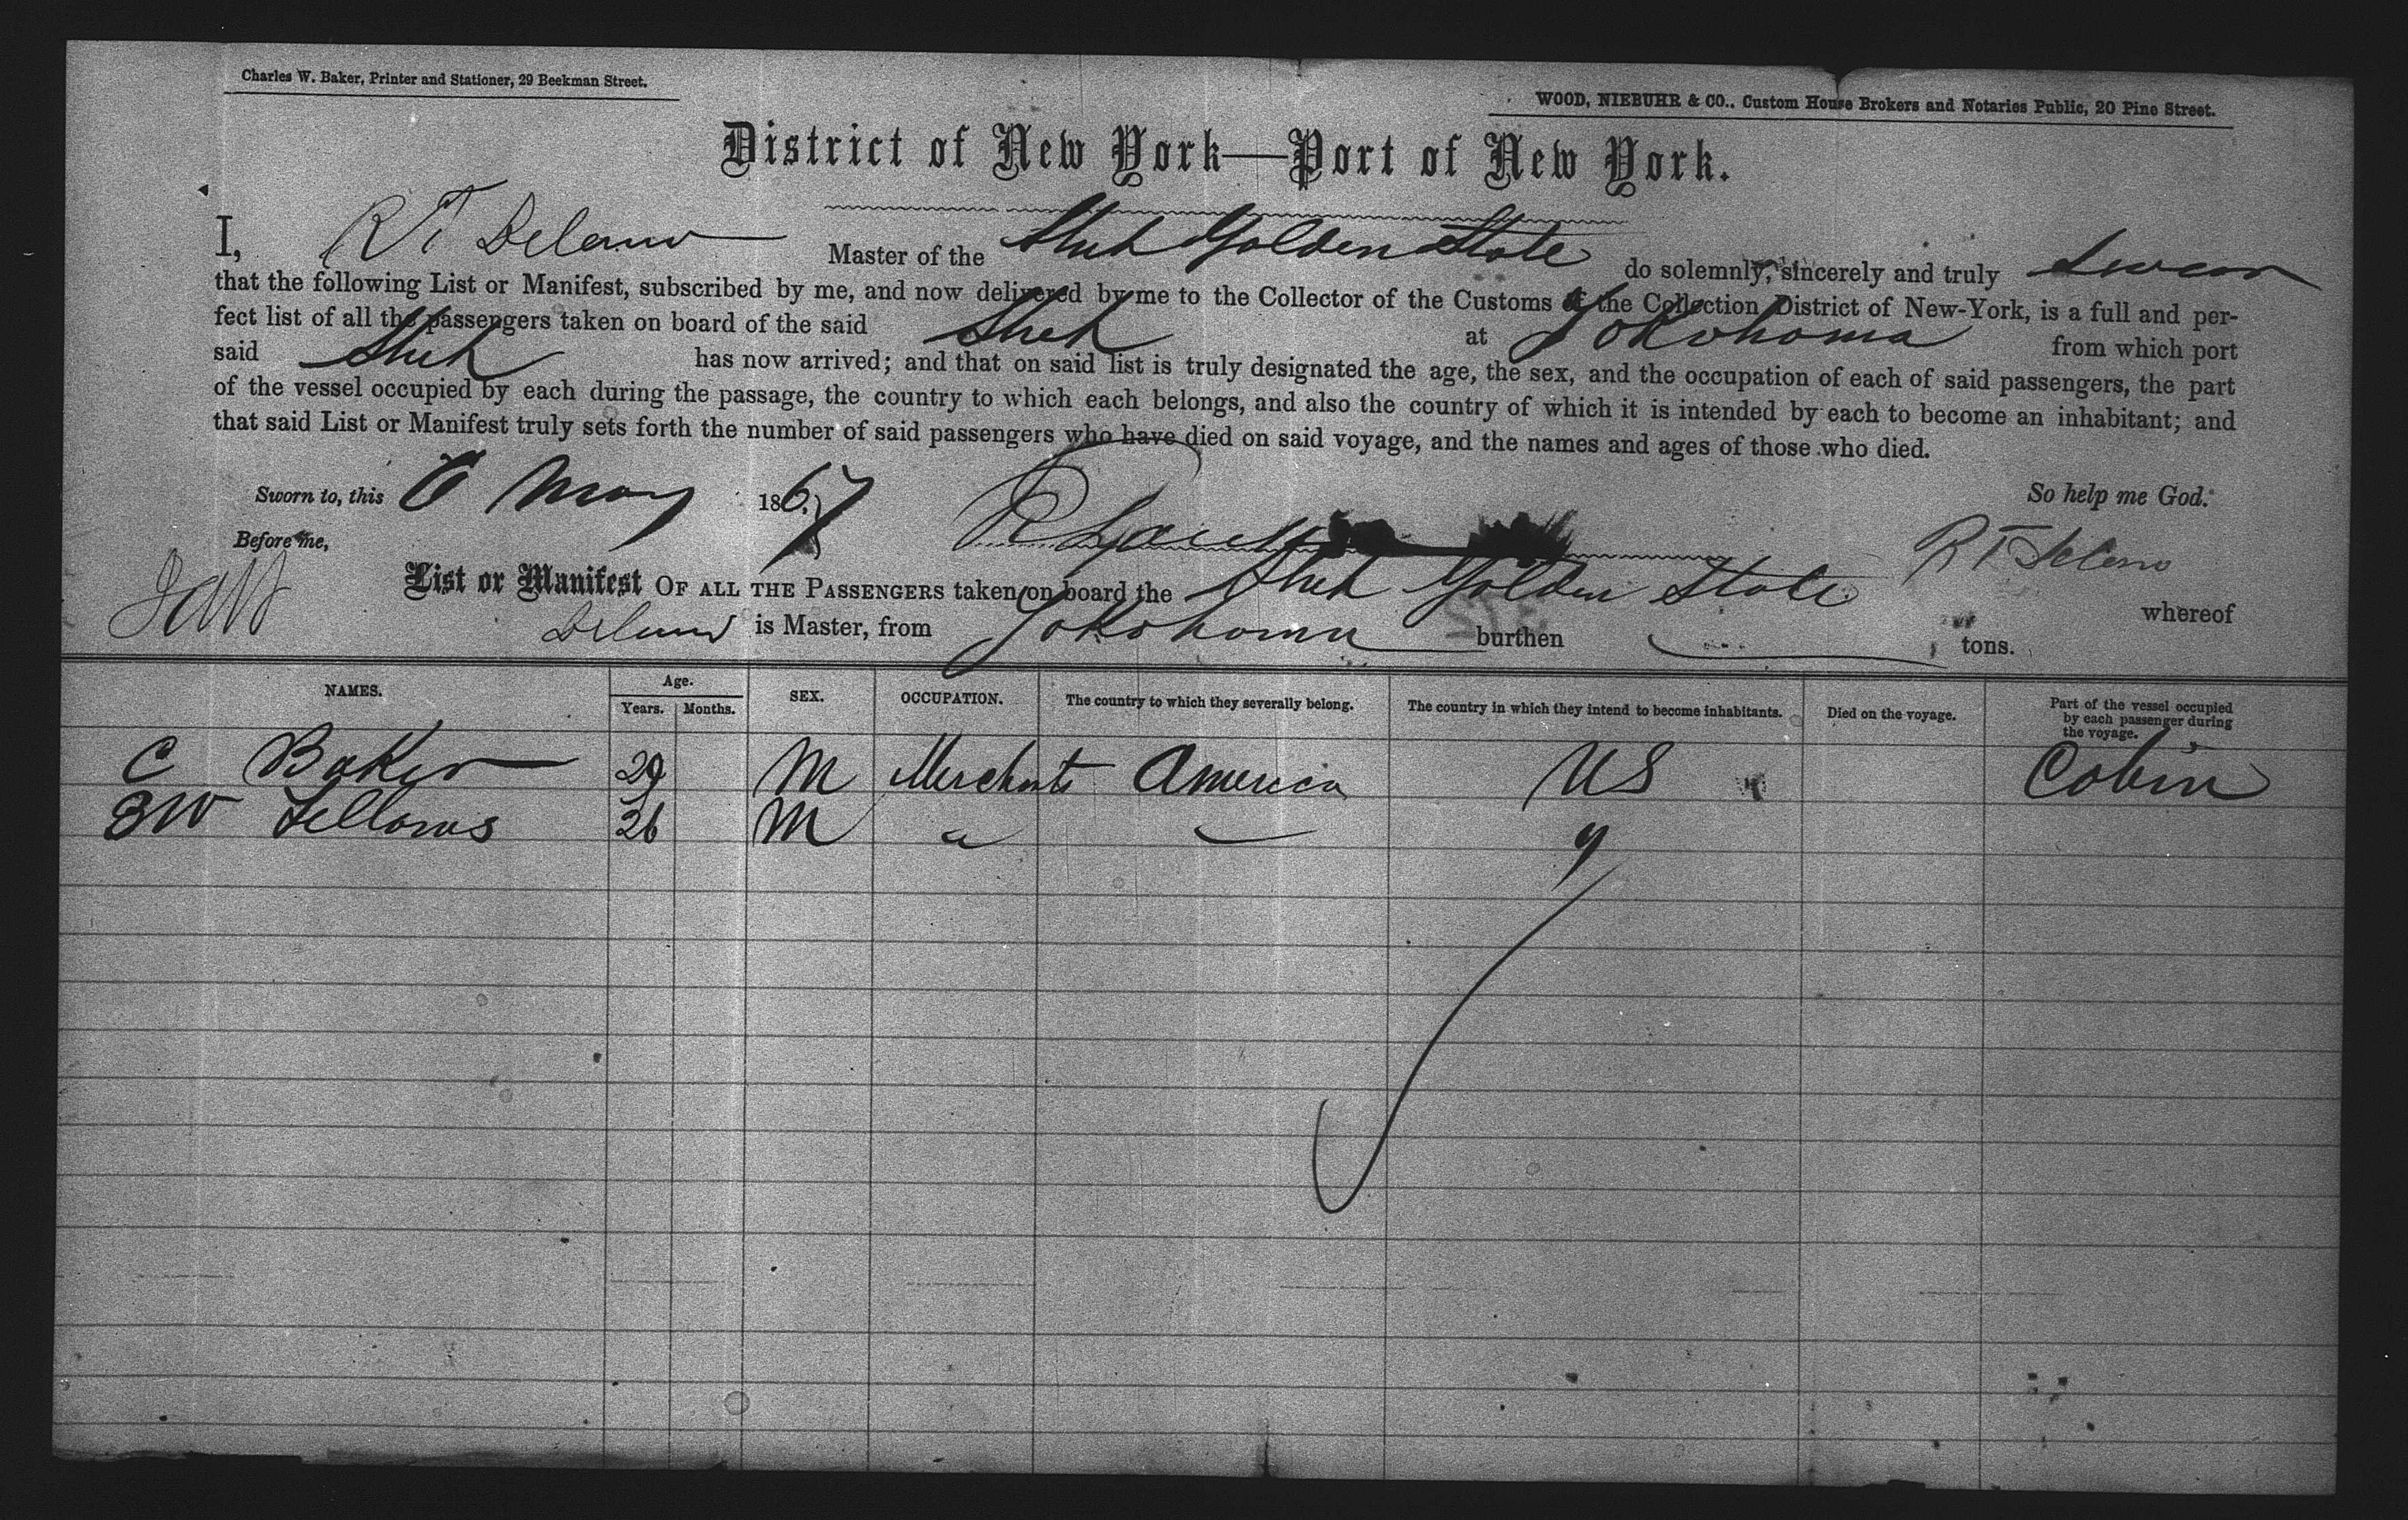 Charles W. Baker, Printer and Stationer, 29 Beekman Street.
WOOD, NIEBUHR & CO.. Custom House Brokers and Notaries Public, 20 Pine Street.
District of New York—Port of New York.
I, R T Delano Master of the Golden State do solemnly, sincerely and truly swear
that the following List or Manifest, subscribed by me, and now delivered by me to the Collector of the Customs of the Collection District of New-York, is a full and per-
fect list of all the passengers taken on board of the said at Yokohama from which port
said has now arrived; and that on said list is truly designated the age, the sex, and the occupation of each of said passengers, the part
of the vessel occupied by each during the passage, the country to which each belongs, and also the country of which it is intended by each to become an inhabitant; and
that said List or Manifest truly sets forth the number of said passengers who have died on said voyage, and the names and ages of those who died.
Sworn to, this 6 May 1867 So help me God.
Before me, R T Delano
List or Manifest OF ALL THE PASSENGERS taken on board the Golden State whereof
Delano is Master, from Yokohama burthen tons.
NAMES. Age. Years. Months. SEX. OCCUPATION. The country to which they severally belong. The country in which they intend to become inhabitants. Died on the voyage. Part of the vessel occupied by each passenger during the voyage.
C Baker 29 M Merchants America US Cabin
W Fellows 26 M